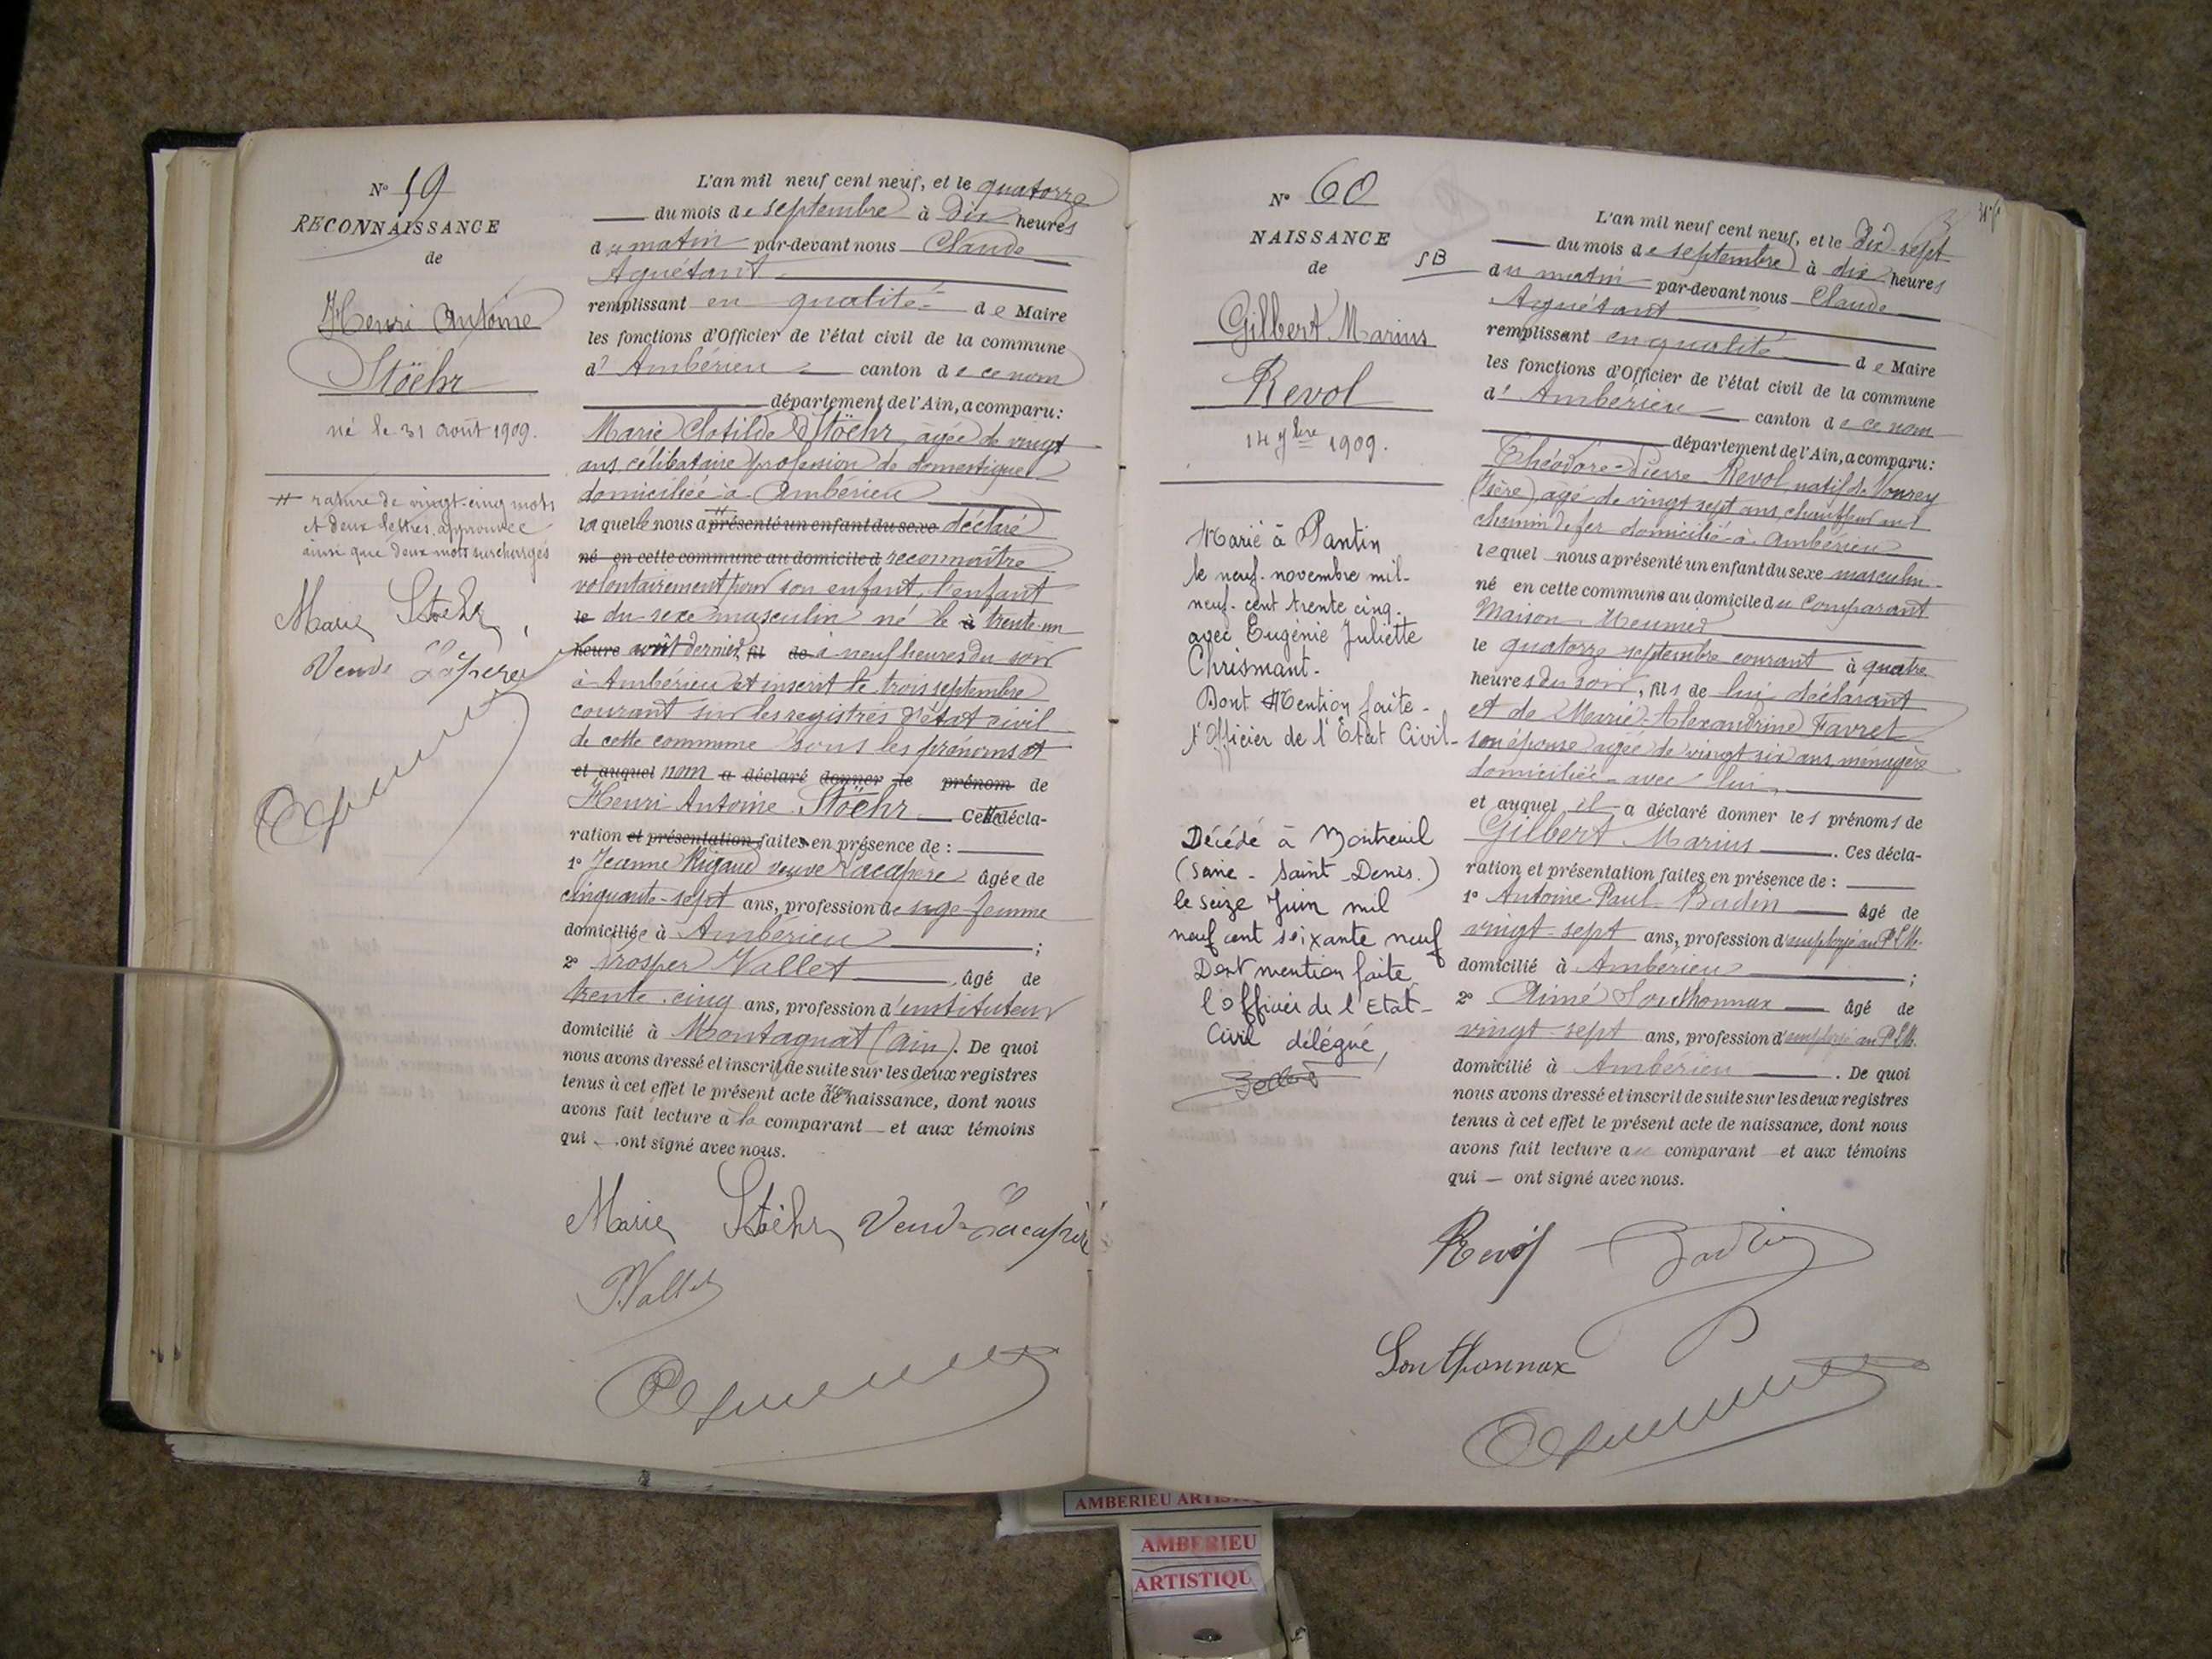 N° 59
RECONNAISSANCE
de
Henri Antoine
Stöehr
né le 31 août 1909.
# rature de vingt-cinq mots
et deux lettres approuvée
ainsi que deux mots surchargés
Marie Stoehr
Veuve
L'an mil neuf cent neuf, et le quatorze
du mois de septembre à dix heures
du matin par-devant nous Claude
Aguétant
remplissant en qualité de Maire
les fonctions d'Officier de l'état civil de la commune
d' Ambérieu canton de ce nom
département de l'Ain, a comparu:
Marie Clotilde Stöehr, agée de vingt
ans, célibataire profession de domestique
domiciliée à Ambérieu
laquelle nous a # présenté un enfant du sexe déclaré
né en cette commune au domicile d reconnaître
volontairement pour son enfant, l'enfant
le du sexe masculin né le à trente-un
heure août dernier, fil de à neuf heures du soir
à Ambérieu et inscrit le trois septembre
courant sur les registres d'état civil
de cette commune sous les prénoms et
et auquel nom a déclaré donner le prénom de
Henri Antoine Stöehr Cette décla-
ration et présentation faites en présence de :
1° Jeanne Rigaud veuve Lacapère âgée de
cinquante-sept ans, profession de sage-femme
domiciliée à Ambérieu ;
2° Prosper Vallet, âgé de
trente-cinq ans, profession d'instituteur
domicilié à Montagnat (Ain). De quoi
nous avons dressé et inscrit de suite sur les deux registres
tenus à cet effet le présent acte de naissance, dont nous
avons fait lecture à la comparant et aux témoins
qui ont signé avec nous.
Marie Stoëhr Veuve Lacapère
P. Vallet
N° 60
NAISSANCE
de
SB
Gilbert Marius
Revol
14 7bre 1909.
Marié à Pantin
le neuf novembre mil-
neuf-cent trente cinq.
avec Eugénie Juliette
Chrismant.
Dont Mention faite.
l'Officier de l'Etat Civil
Décédé à Montreuil
(Seine - Saint-Denis.)
le seize Juin mil
neuf cent soixante neuf
Dont mention faite
l'officier de l'Etat-
Civil délégué,
L'an mil neuf cent neuf, et le dix-sept
du mois de septembre à dix heures
du matin par-devant nous Claude
Aguétant
remplissant en qualité de Maire
les fonctions d'Officier de l'état civil de la commune
d' Ambérieu canton de ce nom
département de l'Ain, a comparu:
Théodore-Pierre Revol, natif de Vourey
(Isère) agé de vingt-sept ans, chauffeur au
chemin de fer domicilié à Ambérieu
lequel nous a présenté un enfant du sexe masculin
né en cette commune au domicile du comparant
Maison Meunier
le quatorze septembre courant à quatre
heures du soir, fils de lui déclarant
et de Marie-Alexandrine Favret
son épouse agée de vingt six ans, ménagère
domiciliée avec lui,
et auquel il a déclaré donner les prénoms de
Gilbert Marius . Ces décla-
ration et présentation faites en présence de :
1° Antoine Paul Badin âgé de
vingt-sept ans, profession d'employé au P.L.M.
domicilié à Ambérieu ;
2° Aimé Southonnax âgé de
vingt-sept ans, profession d'employé au P.L.M.
domicilié à Ambérieu . De quoi
nous avons dressé et inscrit de suite sur les deux registres
tenus à cet effet le présent acte de naissance, dont nous
avons fait lecture au comparant et aux témoins
qui ont signé avec nous.
Revol Badin
Southonnax
AMBERIEU
AMBERIEU
ARTISTIQU